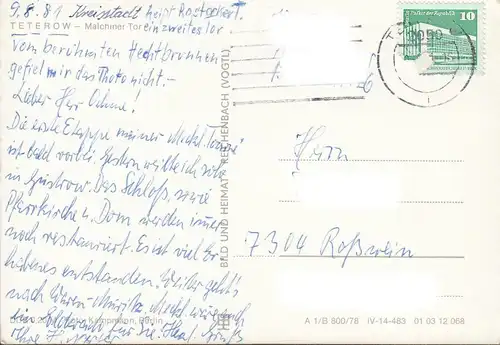 9.8.81 Kreisstadt heißt
TETEROW – Malchiner Tor
einzweites Tor
vom berühmten Hechtbrunnen
gefiel mir das Photo nicht. –
Lieber Herr Oehme!
Die erste Etappe meiner "Meckl. Tour"
ist bald vorbei. Gestern weilte ich
in Güstrow. Das Schloß, sowie
Pfarrkirche u. Dom werden immer
noch restauriert. Es ist viel
entstanden. Weiter geht's
nach Waren-Müritz.
BILD UND HEIMAT REICHENBACH (VOGTL)
Berlin
Palast der Republik
10
DDR
Herrn
7304 Roßwein
A 1/B 800/78 IV-14-483 01 03 12 068